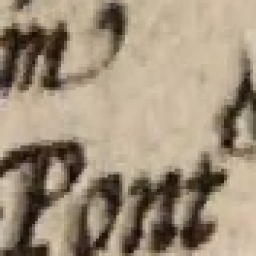 m
Pont